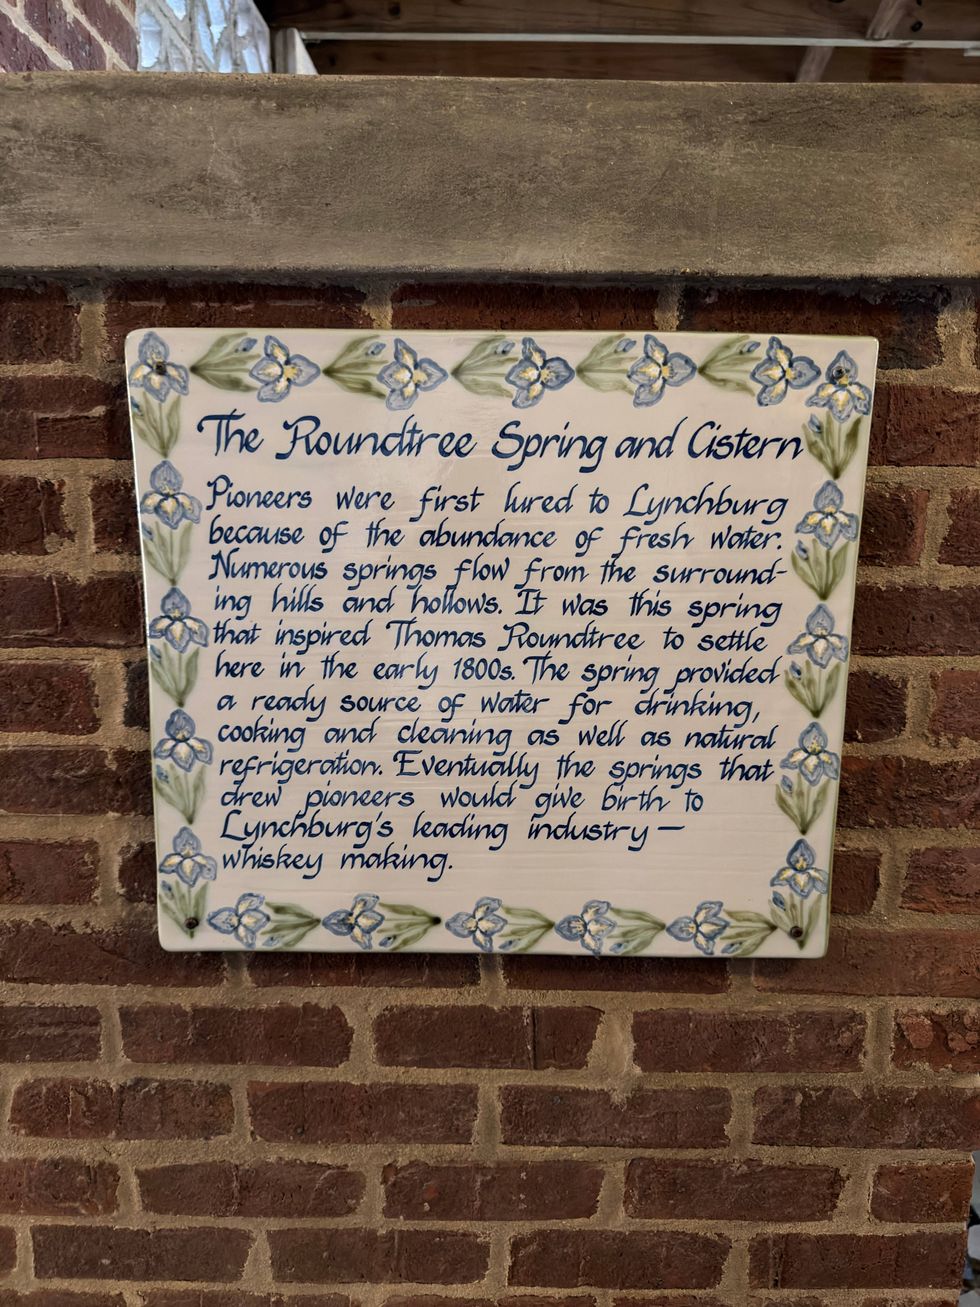 The Roundtree Spring and Cistern
Pioneers were first lured to Lynchburg
because of the abundance of fresh water.
Numerous springs flow from the surround-
ing hills and hollows. It was this spring
that inspired Thomas Roundtree to settle
here in the early 1800s. The spring provided
a ready source of water for drinking,
cooking and cleaning as well as natural
refrigeration. Eventually the springs that
drew pioneers would give birth to
Lynchburg's leading industry—
whiskey making.